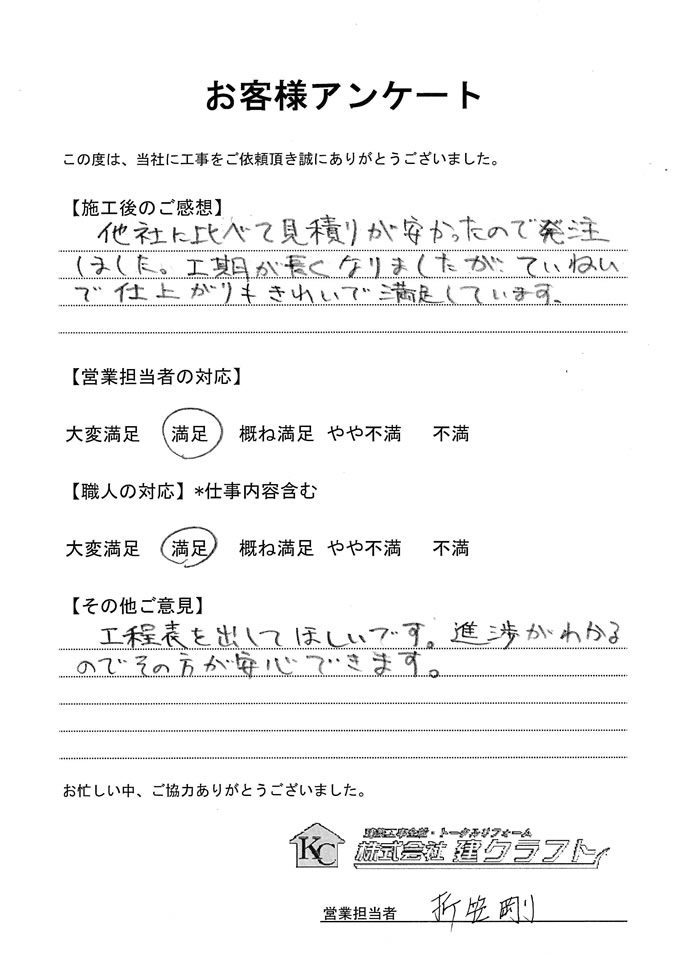 お客様アンケート
この度は、当社に工事をご依頼頂き誠にありがとうございました。
【施工後のご感想】
他社に比べて見積りが安かったので発注
しました。工期が長くなりましたが、ていねい
で仕上がりもきれいで満足しています。
【営業担当者の対応】
大変満足 満足 概ね満足 やや不満 不満
【職人の対応】*仕事内容含む
大変満足 満足 概ね満足 やや不満 不満
【その他ご意見】
工程表を出してほしいです。進渉がわかる
のでその方が安心できます。
お忙しい中、ご協力ありがとうございました。
KC
建築工事全般・トータルリフォーム
株式会社 建クラフト
営業担当者 折笠剛